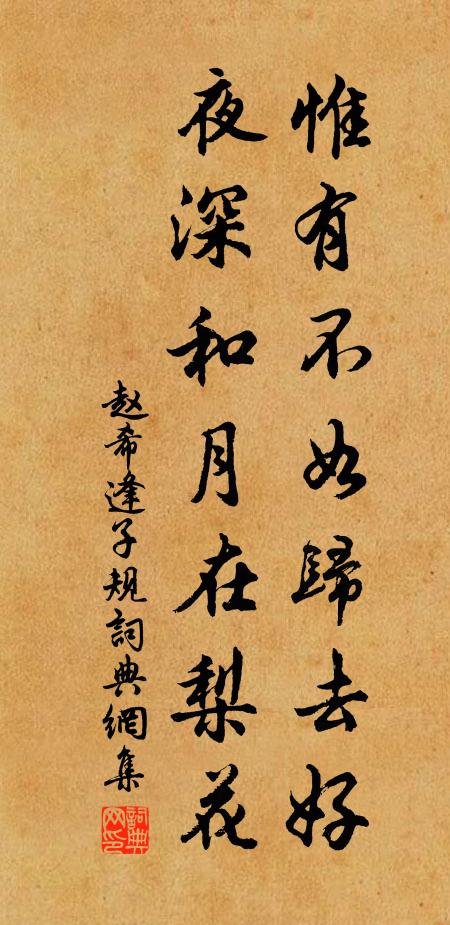 惟有不如歸去好
夜深和月在梨花
赵希逢子规詞典網集
詞典网印